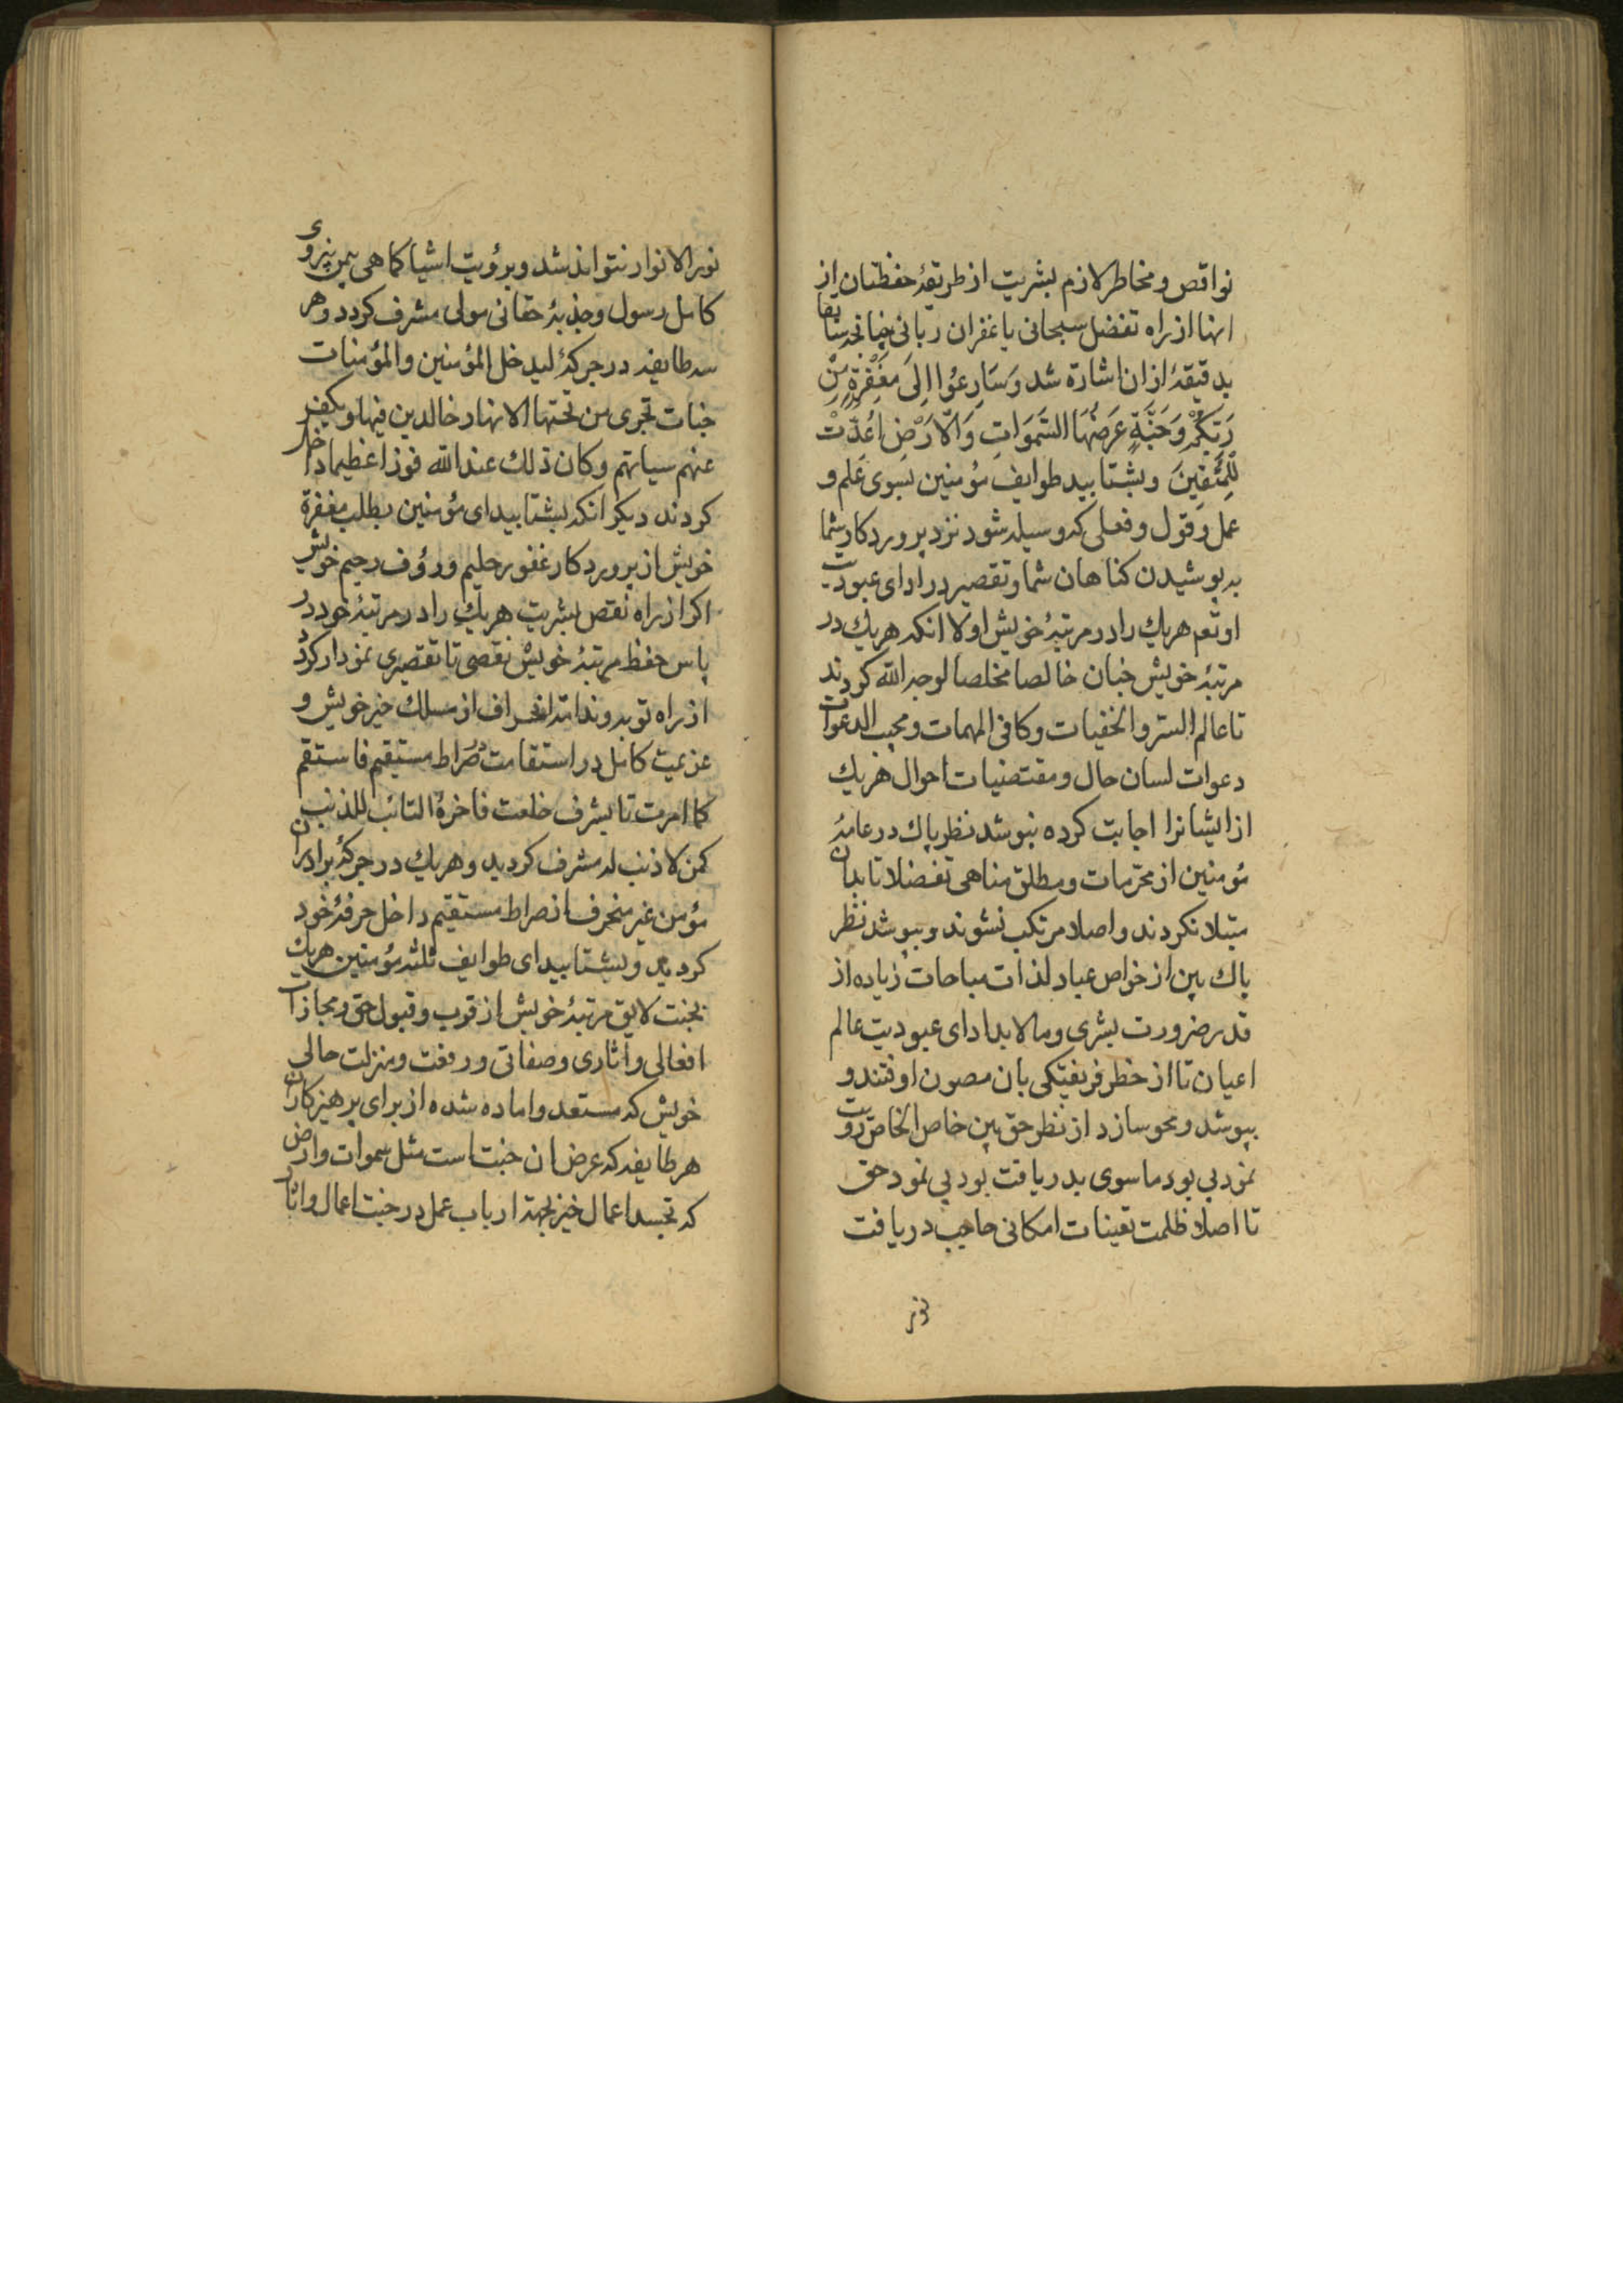 نواقص و مخاطر لازم بشریت از طریقهٔ حفظتان از
انها از راه تفضل سبحانی یا غفران ربانی چنانچه سابقا
بدقیقهٔ ازان اشارة شد وَسَارِعُوا اِلیَ مَغْفِرَةٍ مِنْ
رَبِّكُمْ وَجَنَّةٍ عَرضُهَا السَّمَوَاتِ وَالاَرْضِ اُعِدَّتْ
لِلْمُتَّقِینَ وبشتابید طوایف مؤمنین بسوی علم و
عمل و قول و فعلی که وسیله شود نزد پروردکار شما
به پوشیدن کناهان شما و تقصیر در ادای عبودیت
او تعم هریك را در مرتبهٔ خویش اولا انکه هریك در
مرتبهٔ خویش چنان خالصا مخلصا لوجه الله کردند
تا عالم السر والخفیات وکافی المهمات ومجیب الدعوات
دعوات لسان حال و مقتضیات احوال هریك
از ایشانرا اجابت کرده بپوشد نظر پاك در عامهٔ
مؤمنین از محرمات و مطلق مناهی تفضلا تا بدان
مبتلا نکردند و اصلا مرتکب نشوند و بپوشد نظر
پاك بین از خواص عباد لذات مباحات زیاده از
قدر ضرورت بشری وما لابد ادای عبودیت عالم
اعیان تا از خطر فریفتکی بان مصون اوفتند و
بپوشد و محو سازد از نظر حق بین خاص الخاص رویت
نمود بی بود ماسوی بدریافت بود بی نمود حق
تا اصلا ظلمت تعینات امکانی حاجب دریافت
نور
نور الانوار نتواند شد و برؤیت اشیا کما هی بمن پیروی
کامل رسول و جذبهٔ حقانی مولی مشرف کردد و هر
سه طایفه در جرکهٔ لیدخل المؤمنین والمؤمنات
جنات تجری من تحتها الانهار خالدین فیها ویکفر
عنهم سیاتهم وکان ذلك عند الله فوزا عظیما داخل
کردند دیکر انکه بشتابید ای مؤمنین بطلب مغفرة
خویش از پروردکار غفور حلیم و رؤف رحیم خویش
اکر از راه نقص بشریت هریك را در مرتبهٔ خود در
پاس حفظ مرتبهٔ خویش نقصی تا تقصیری نمودار کردد
از راه توبه و ندامت انحراف از مسلك خیر خویش و
عزیمت کامل در استقامت صراط مستقیم فاستقم
کما امرت تا بشرف خلعت فاخرهٔ التائب للذنب
کمن لا ذنب له مشرف کردید و هریك در جرکهٔ برادران
مؤمن غیر منحرف از صراط مستقیم داخل حرفهٔ خود
کردید و بشتابید ای طوایف ثلثه مؤمنین هریك
بجنت لایق مرتبهٔ خویش از قرب و قبول حق و مجازات
افعالی و اثاری و صفاتی و رفعت و منزلت حالی
خویش که مستعد و اماده شده از برای پرهیزکاران
هر طایفه که عرض ان جنت است مثل سموات وارض
که تجسد اعمال خیر بجهة ارباب عمل در جنت اعمال و اثار